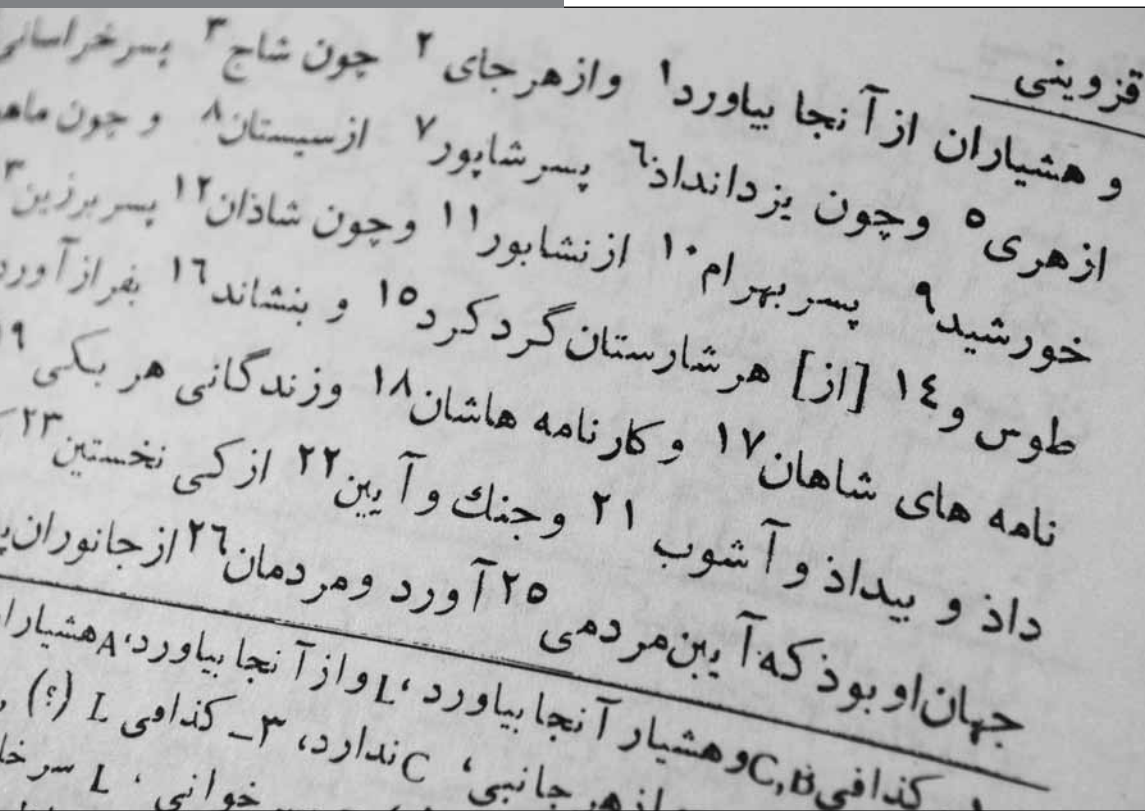 قزوینی
و هشیاران از آنجا بیاورد۱ وازهرجای ۲ چون شاج۳ پسرخراسانی
ازهری۵ وچون یزدانداذ٦ پسرشاپور۷ ازسیستان۸ و چون ماهو
خورشید۹ پسربهرام۱۰ ازنشابور۱۱ وچون شاذان۱۲ پسربرزین۱۳
طوس و۱٤ [از] هرشارستان گردکرد۱۵ و بنشاند۱٦ بفرازآورد
نامه های شاهان۱۷ وکارنامه هاشان۱۸ وزندگانی هر یکی۱۹
داذ و بیداذ وآشوب ۲۱ وجنك وآیین۲۲ ازکی نخستین۲۳
جهان اوبوذ که آیین مردمی ۲۵ آورد ومردمان۲٦ ازجانوران
کذافیC,B وهشیار آنجا بیاورد، L وازآنجا بیاورد، A هشیارا
ازهر جانبی، C ندارد، ۳ـ کذافی L (؟)
خوانی، L سرخا